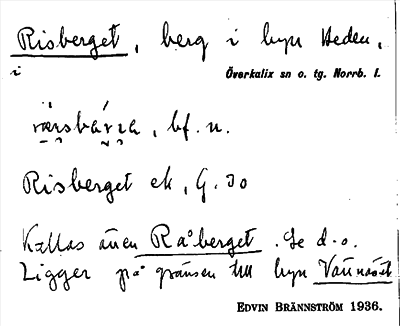 Risberget, berg i byn Heden,
i Överkalix sn o. tg. Norrb. l.
bf. n.
Risberget ek, G. 30
Kallas även Råberget. Se d. o.
Ligger på gränsen till byn
EDVIN BRÄNNSTRÖM 1936.